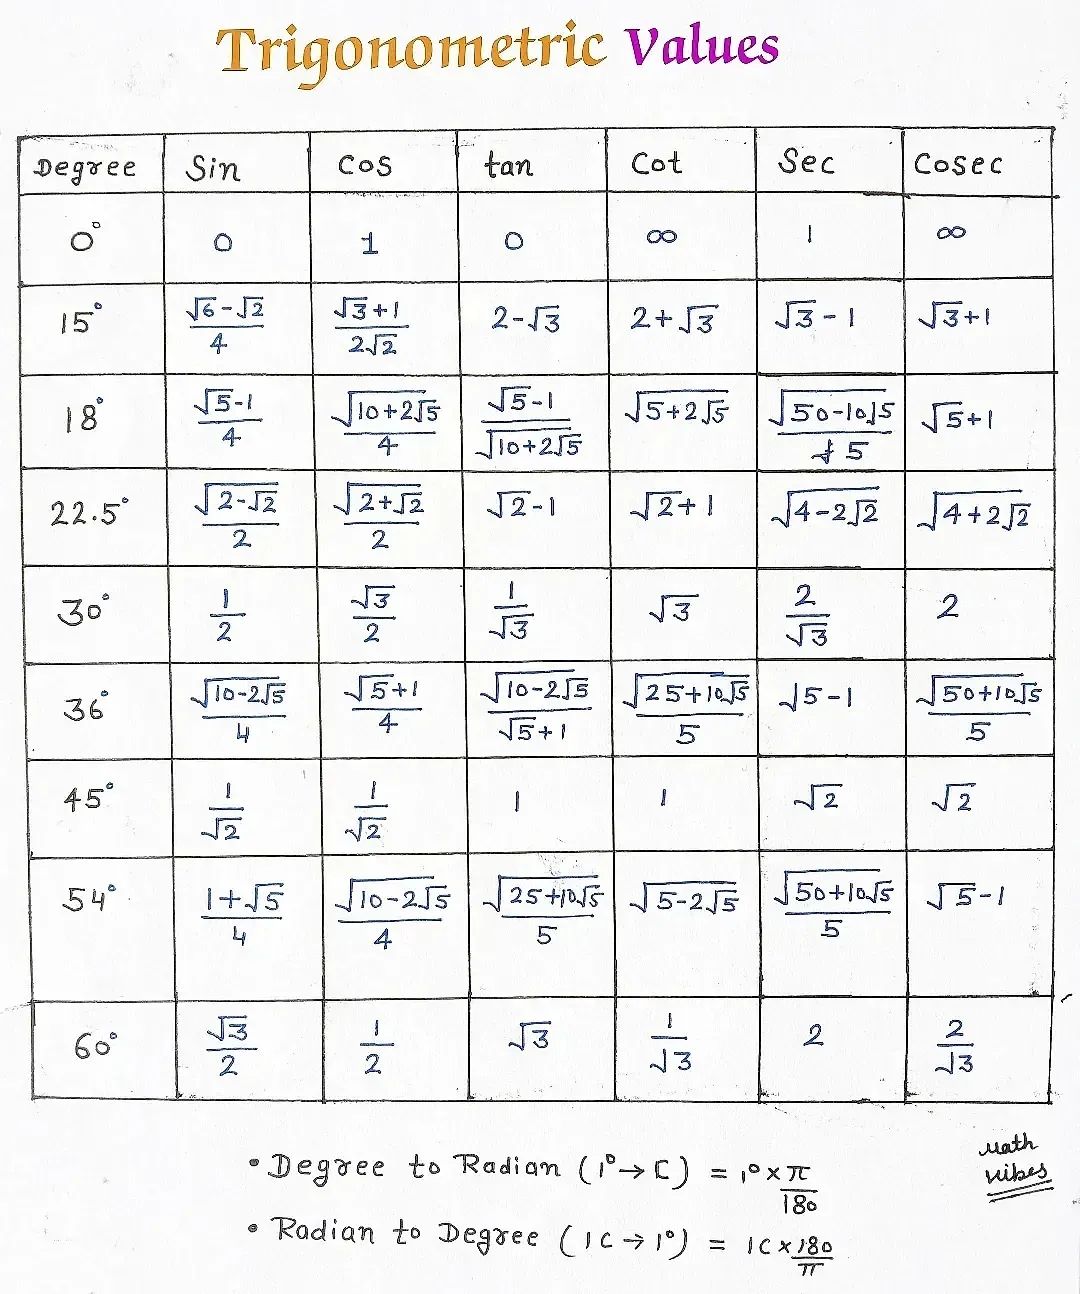 Trigonometric Values
Degree Sin Cos tan Cot Sec Cosec
0° 0 1 0 ∞ 1 ∞
15° (√6-√2)/4 (√3+1)/(2√2) 2-√3 2+√3 √3-1 √3+1
18° (√5-1)/4 √(10+2√5)/4 (√5-1)/√(10+2√5) √(5+2√5) √(50-10√5)/5 √5+1
22.5° √(2-√2)/2 √(2+√2)/2 √2-1 √2+1 √(4-2√2) √(4+2√2)
30° 1/2 √3/2 1/√3 √3 2/√3 2
36° √(10-2√5)/4 (√5+1)/4 √(10-2√5)/(√5+1) √(25+10√5)/5 √5-1 √(50+10√5)/5
45° 1/√2 1/√2 1 1 √2 √2
54° (1+√5)/4 √(10-2√5)/4 √(25+10√5)/5 √(5-2√5) √(50+10√5)/5 √5-1
60° √3/2 1/2 √3 1/√3 2 2/√3
• Degree to Radian (1°→C) = 1°×π/180
• Radian to Degree (1C→1°) = 1C×180/π
Math
vibes